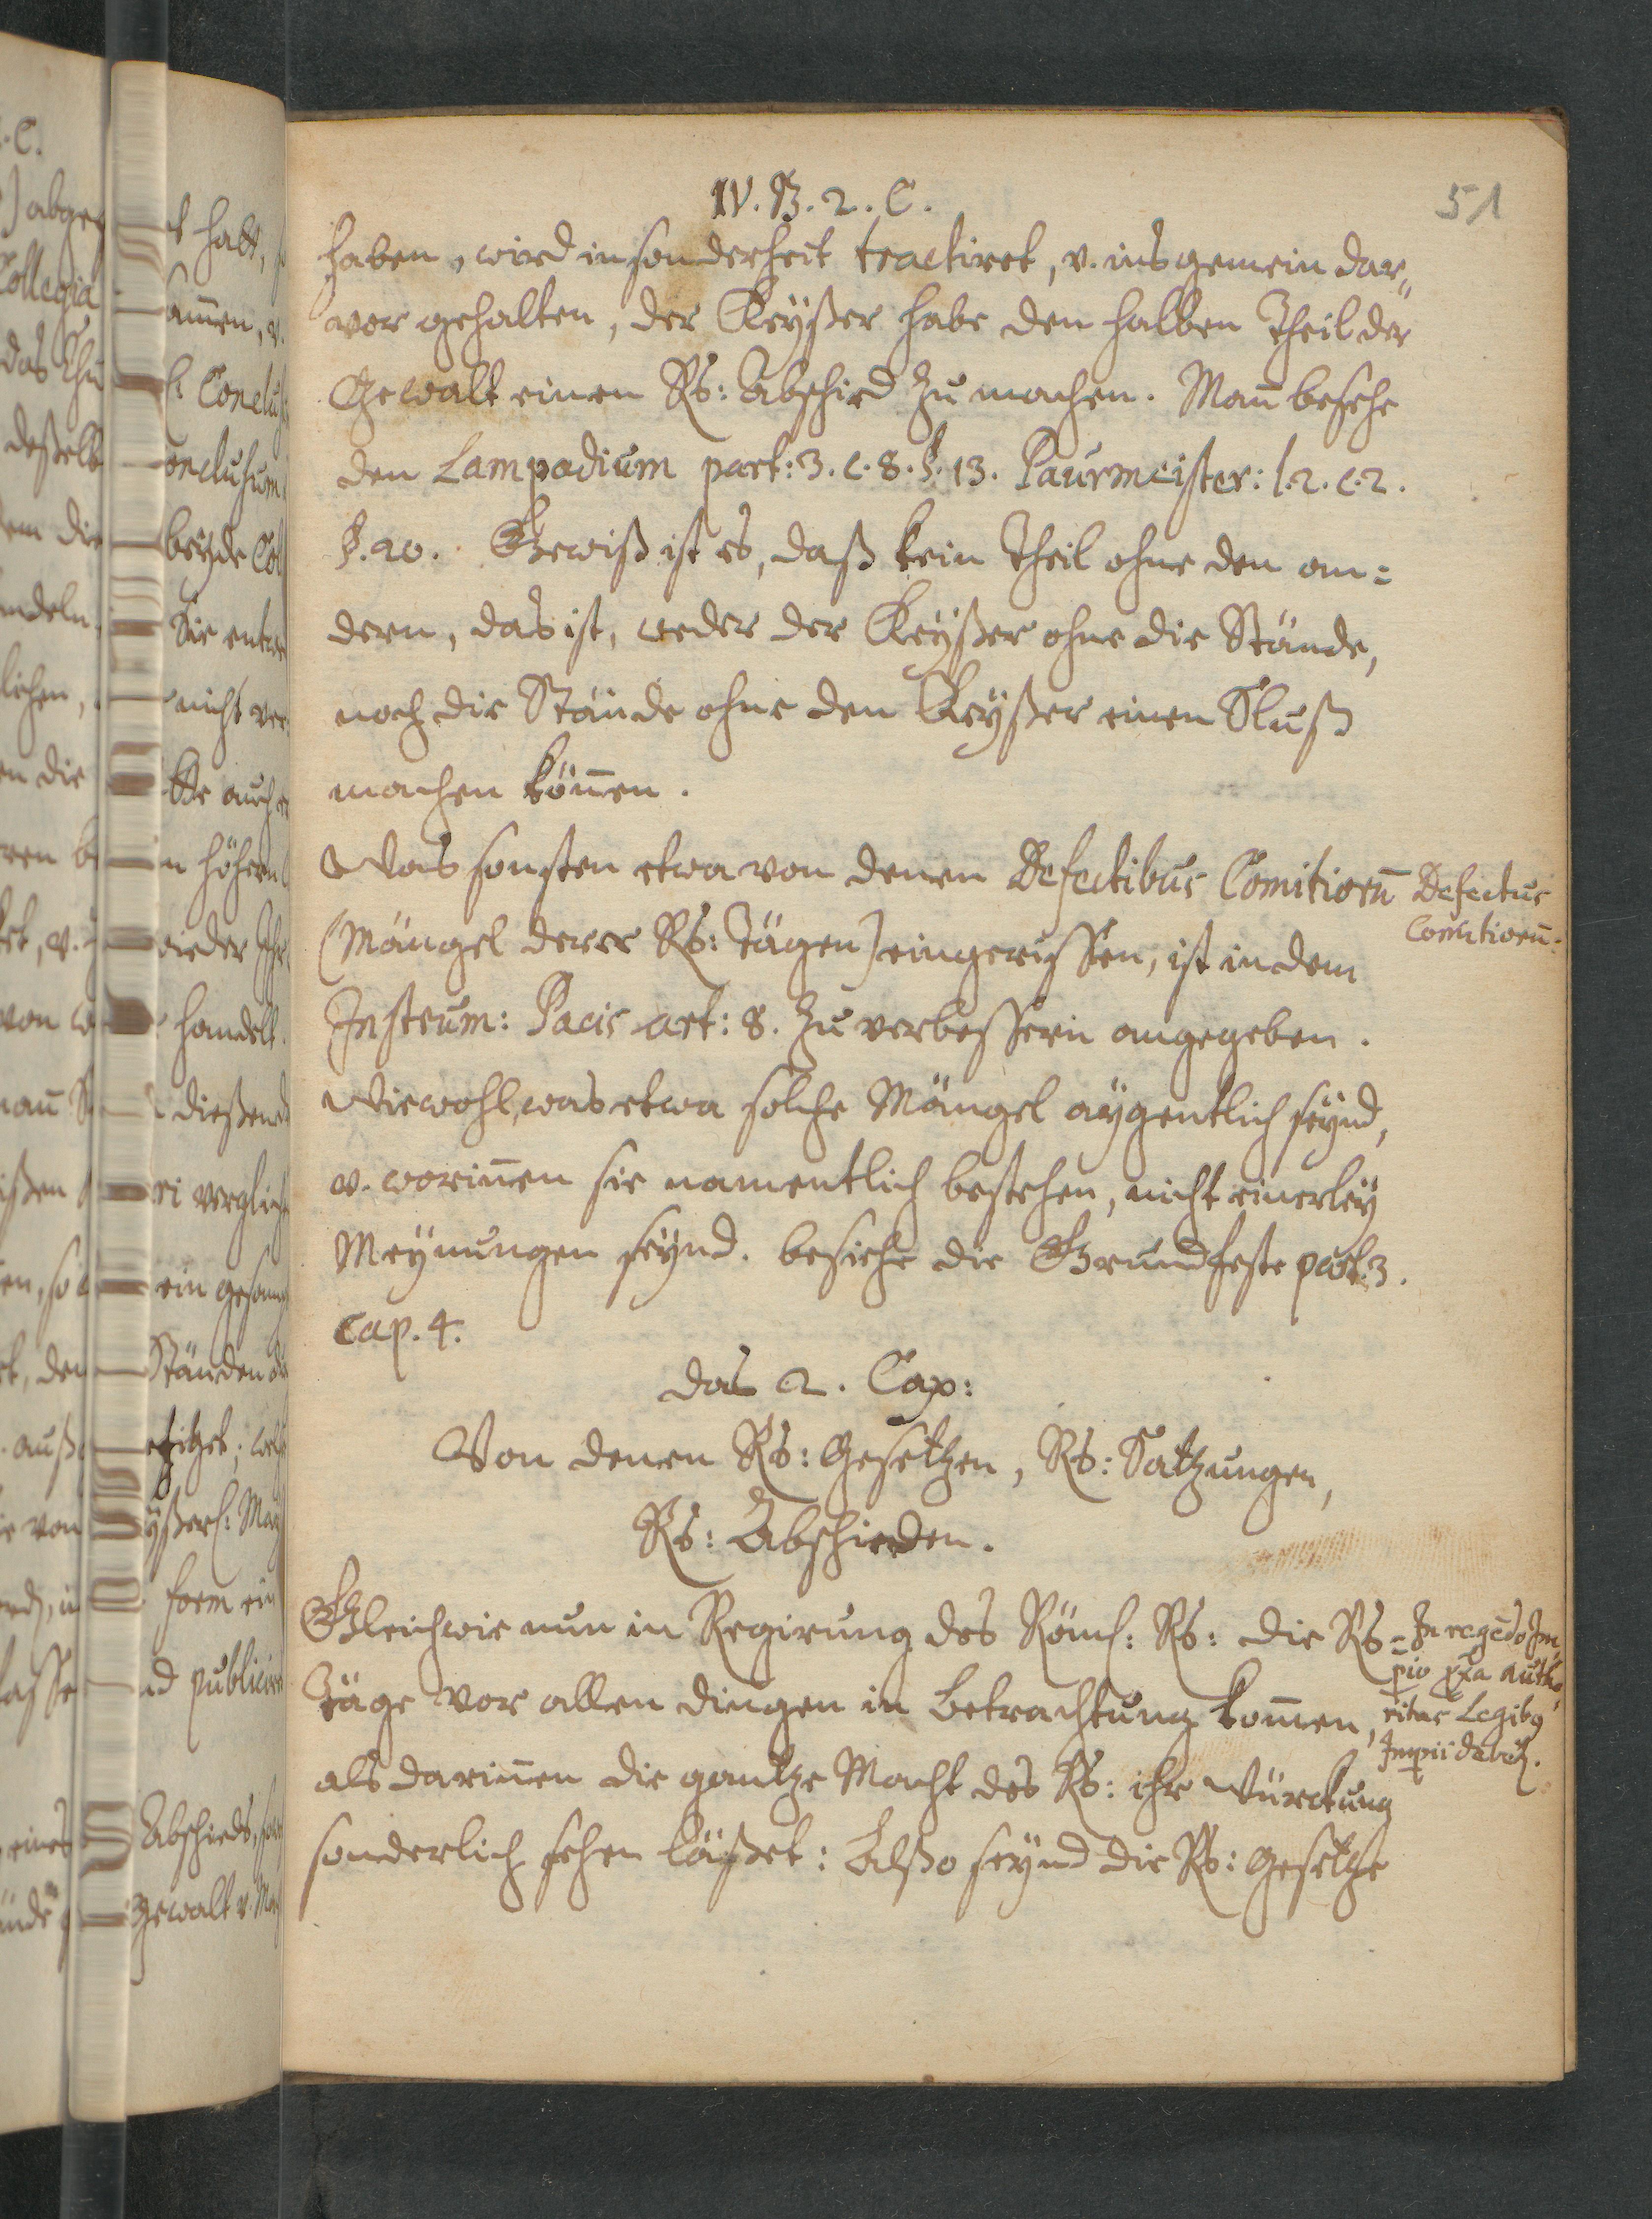 IV. B. 2. C.
51
haben, wird insonderheit tractiret, v. insgemein dar„
vor gehalten, der Keyßer habe den halben Theil der
Gewalt einen Rs: Abschied zu machen. Man̄ besehe
den Lampadium part: 3. c. 8. §. 13. Paurmeister: l. 2. c. 2.
§. 20. Gewiß ist es, daß kein Theil ohne den an=
dern, das ist, weder der Keyßer ohne die Stände,
noch die Stände ohne den Keyßer einen Sluß
machen kön̄en.
Was sonsten etwa von denen Defectibus Comitiorū
(Mängel derer Rs: Tägen) eingerissen, ist in dem
Instrum: Pacis art: 8. zu verbessern angegeben.
Wiewohl, was etwa solche Mängel aygentlich seynd,
v. worin̄en sie namentlich bestehen, nicht einerley
Meynungen seynd. besiehe die Grundfeste part. 3.
cap. 4.
Defectus
Comitiorū.
das 2. Cap:
Von denen Rs: Gesetzen, Rs: Satzungen,
Rs: Abschieden.
Gleichwie nun in Regirung des Röm: Rs: die Rs=
Täge vor allen dingen in betrachtung kom̄en,
als darin̄en die gantze Macht des Rs: ihr Würckung
sonderlich sehen läßet: Also seynd die Rs: Gesetze
In regēdo Im„
pio autho„
ritas Legibg
Impii debet.